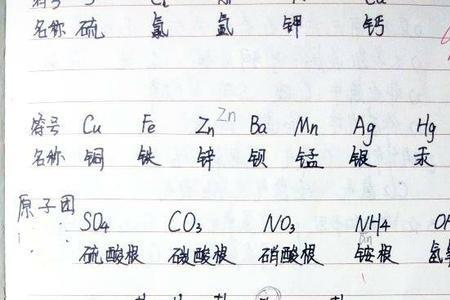 名称 硫 氯 氩 钾 钙
符号 Cu Fe Zn Zn Ba Mn Ag Hg
名称 铜 铁 锌 钡 锰 银 汞
原子团
SO4 CO3 NO3 NH4
硫酸根 碳酸根 硝酸根 铵根